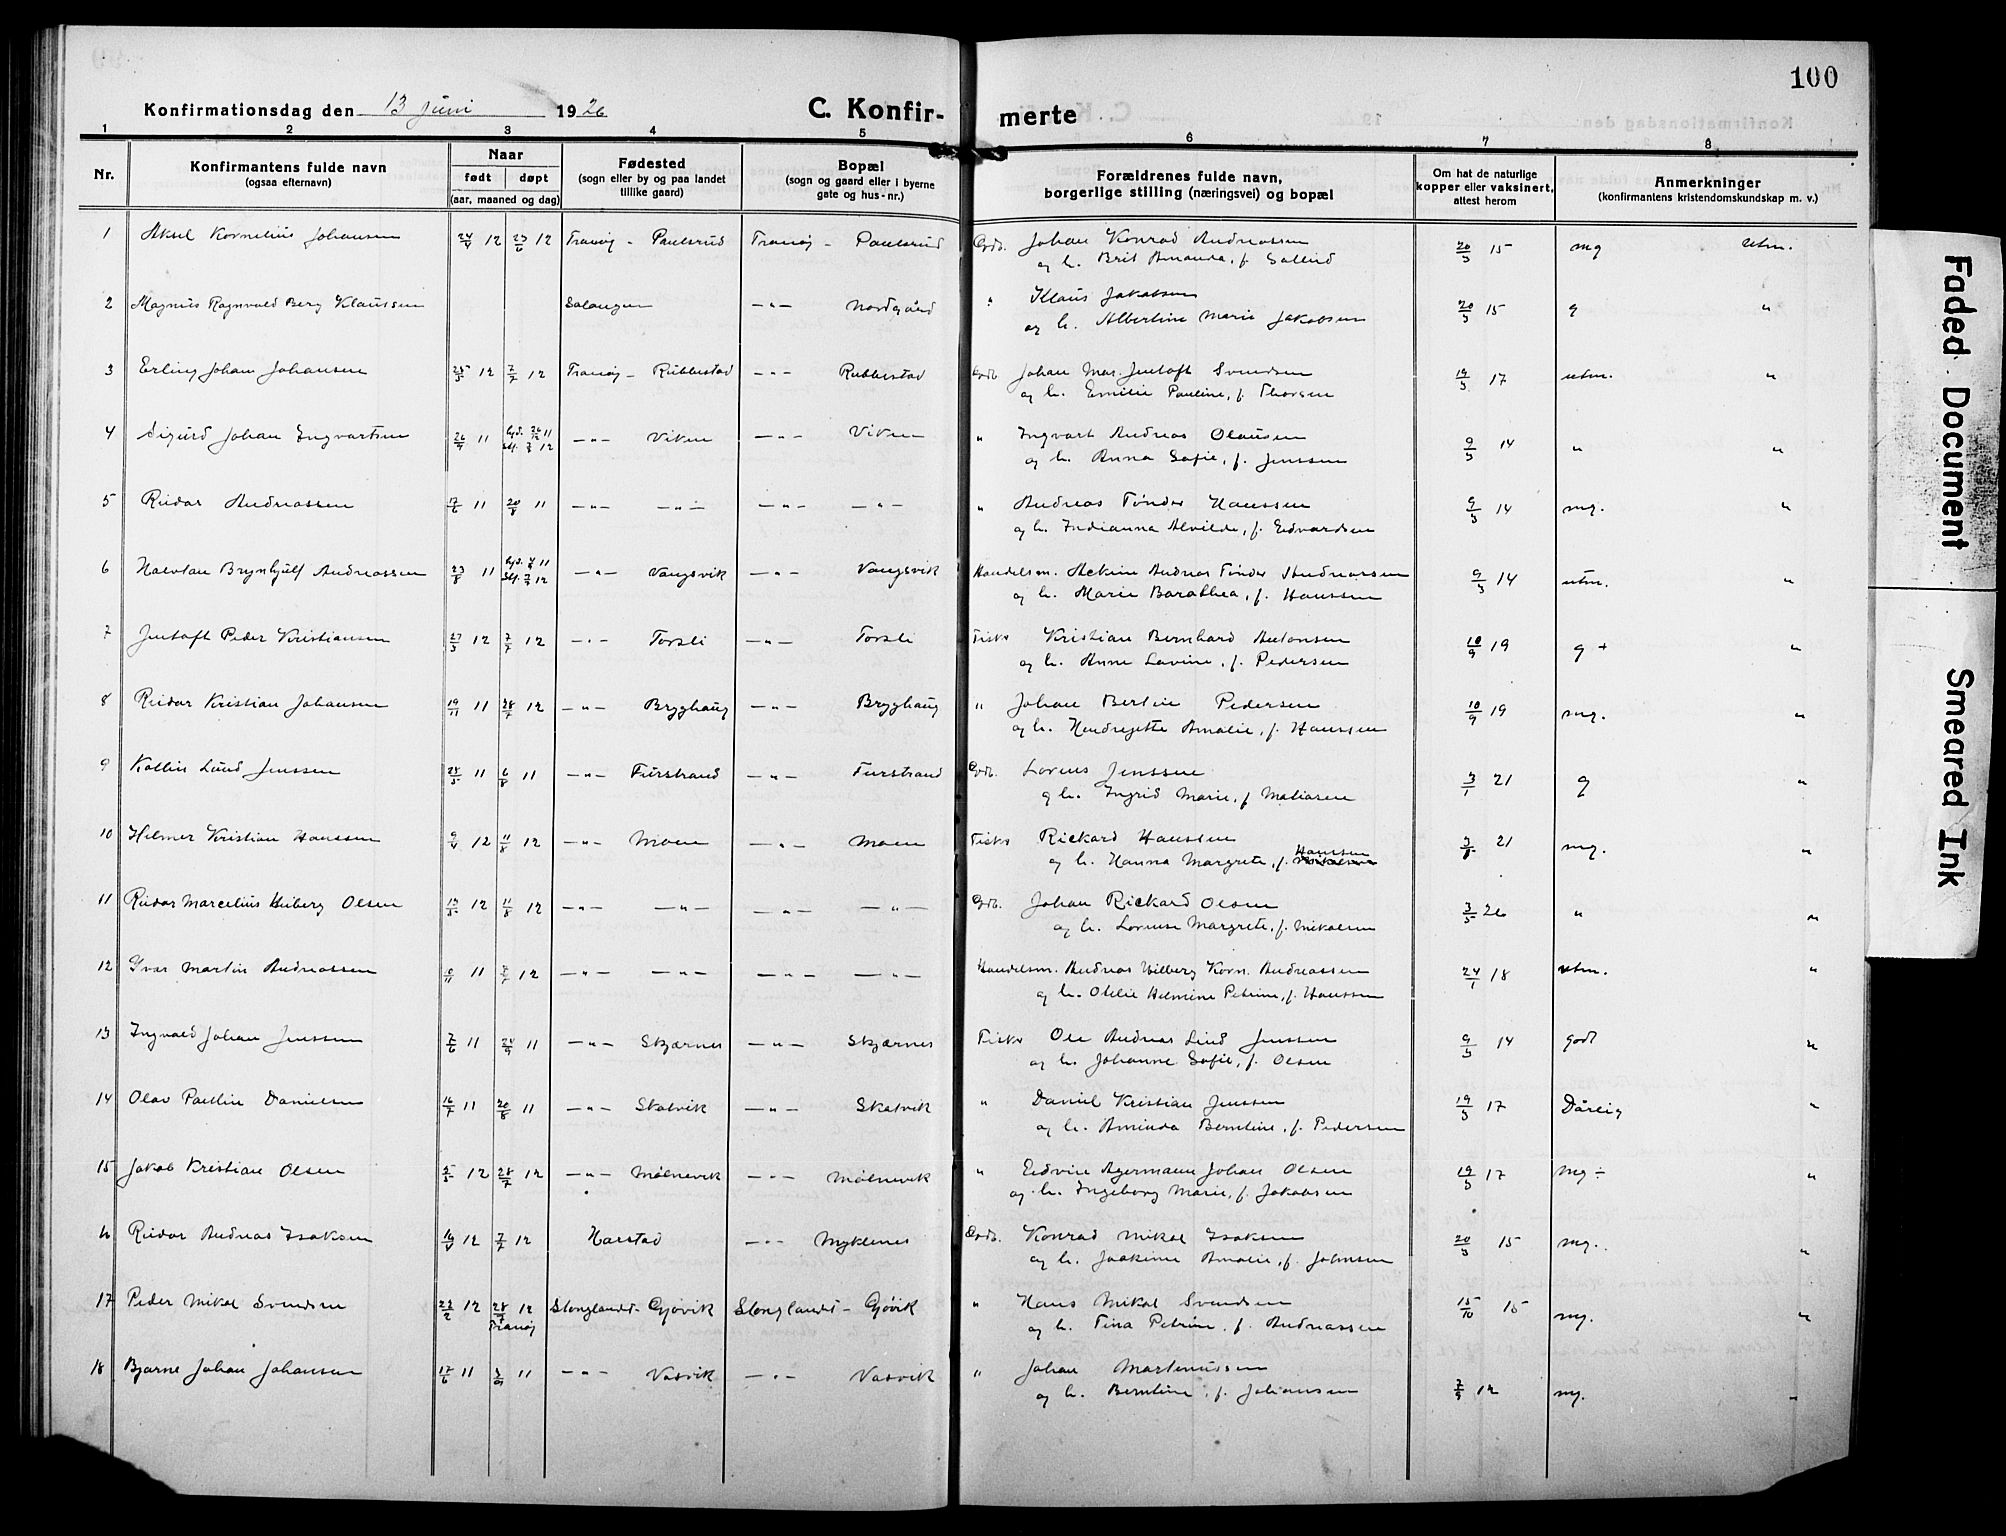 100
Konfirmationsdag den 13 juni 1926
C. Konfirmerte
1 2 3 4 5 6 7 8
Nr.
Konfirmantens fulde navn
(ogsaa efternavn)
Naar
født døpt
(aar, maaned og dag)
Fødested
(sogn eller by og paa landet
tillike gaard)
Bopæl
(sogn og gaard eller i byerne
gate og hus-nr.)
Forældrenes fulde navn,
borgerlige stilling (næringsvei) og bopæl
Om hat de naturlige
kopper eller vaksinert,
attest herom
Anmerkninger
(konfirmantens kristendomskundskap m. v.)
1 Aksel Kornelius Johansen 24/4 12 23/6 12 Tranøy - Paulsrud Tranøy - Paulsrud Gdb. Johan Konrad Andreassen 20/3 15 mg utm.
og h. Brit Amanda, f.
2 Magnus Ragnvald Berg Klaussen Salangen -"- Nordgård " Klaus Jakobsen 20/3 15 g "
og h. Albertine Marie Jakobsen
3 Erling Johan Johansen 25/5 12 7/7 12 Tranøy - Rubbestad -"- Rubbestad Gdb. Johan Mar. Jentoft Svendsen 19/3 17 utm. "
og h. Emilie Pauline, f. Thorsen
4 Sigurd Johan Ingvartsen 26/9 11 hjd. 26/12 11 -"- Viken -"- Viken " Ingvart Andreas Olausen 9/3 14 " "
stf. 7/7 12
og h. Anna Sofie, f. Jenssen
5 Reidar Andreassen 17/6 11 20/8 11 -"- -"- -"- -"- " Andreas Tönder Hanssen 9/3 14 mg. "
og h. Indianna Alvilde, f. Edvardsen
6 Halvdan Brynhjulf Andreassen 23/8 11 -"- Vangsvik -"- Vangsvik Handelsm. Andreas Tönder Andreassen 9/3 14 utm. "
og h. Marie Barathea, f. Hanssen
7 Jentoft Peder Kristiansen 27/3 12 7/7 12 -"- Torsli -"- Torsli Fisk. Kristian Bernhard Antonsen 10/9 19 g + "
og h. Anne Lavine, f. Pedersen
8 Reidar Kristian Johansen 19/11 11 28/7 12 -"- Brygghaug -"- Brygghaug " Johan Bertin Pedersen 10/9 19 mg. "
og h. Hendrejette Amalie, f. Hanssen
9 Kollin Lund Jenssen 28/5 11 6/8 11 -"- Furstrand -"- Furstrand Gdb. Lorens Jenssen 3/1 21 g "
og h. Ingrid Marie, f. Matiasen
10 Helmer Kristian Hanssen 9/4 12 11/8 12 -"- Moen -"- Moen Fisk. Rickard Hanssen 3/8 21 mg. "
og h. Hanna Margrete, f. Hanssen
11 Reidar Marcelius Heiberg Olsen 13/5 12 11/8 12 -"- -"- -"- -"- Gdb. Johan Rickard Olsen 3/5 26 " "
og h. Lovise Margrete, f. Mikalsen
12 Ivar Martin Andreassen 9/11 11 7/7 12 -"- -"- -"- -"- Handelsm. Andreas Wilberg Korn. Andreassen 24/1 18 utm. "
og h. Otelie Helmine Petrine, f. Hanssen
13 Ingvald Johan Jenssen 7/6 11 24/9 11 -"- Skjærnes -"- Skjærnes Fisker Ole Andreas Lind Jenssen 9/3 14 godt "
og h. Johanne Sofie, f. Olsen
14 Olav Paulin Danielsen 16/7 11 20/8 11 -"- Skatvik -"- Skatvik " Daniel Kristian Jenssen 19/3 17 Dårlig "
og h. Aminda Berntine, f. Pedersen
15 Jakob Kristian Olsen 5/5 12 28/7 12 -"- Mølnevik -"- Mølnevik " Edvin Agermann Johan Olsen 19/3 17 mg ÷ "
og h. Ingeborg Marie, f. Jakobsen
16 Reidar Andreas Isaksen 14/4 12 7/7 12 Harstad -"- Myklenes Gdb. Konrad Mikal Isaksen 20/3 15 mg. "
og h. Joakime Amalie, f. Johnsen
17 Peder Mikal Svendsen 22/2 12 28/7 12 Stonglandet - Gjøvik Stonglandet - Gjøvik " Hans Mikal Svendsen 15/10 15 mg. "
Tranøy
og h. Tina Petrine, f. Andreassen
18 Bjarne Johan Johansen 17/6 11 11 -"- Vasvik -"- Vasvik " Johan Martinussen 7/9 12 mg. "
og h. Berntine, f. Johansen
Faded Document
Smeared Ink